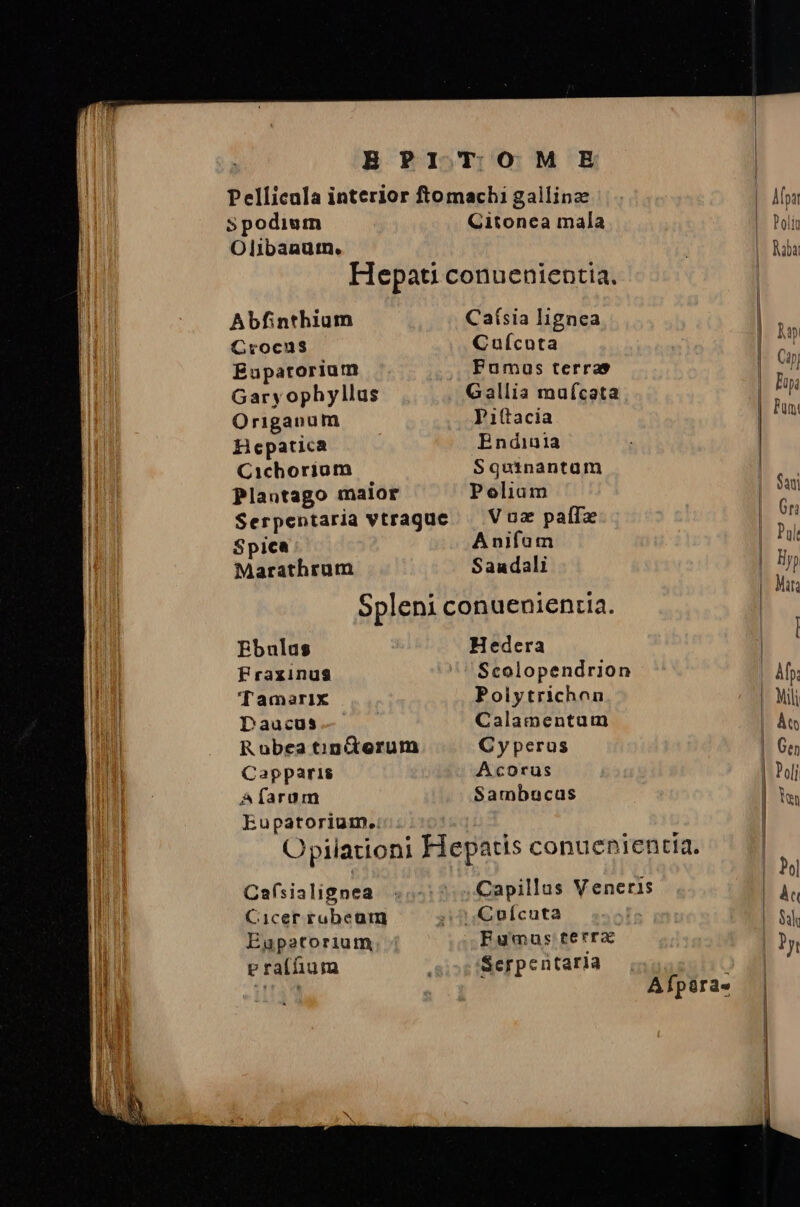 EPITOME
Pellicula interior ſtomachi gallinæ
Spodium Citonea mala
Olibanum.
Hepati conuenientia.
Abſinthium Caſsia lignea
Crocus Cuſcuta
Eupatorium Fumus terræ
Garyophyllus Gallia muſcata
Origanum Piſtacia
Hepatica Endiuia
Cichorium Squinantum
Plantago maior Polium
Serpentaria vtraque Vuæ paſſæ
Spica Aniſum
Marathrum Sandali
Spleni conuenientia.
Ebulus Hedera
Fraxinus Scolopendrion
Tamarix Polytrichon
Daucus Calamentum
Rubea tinctorum Cyperus
Capparis Acorus
Aſarum Sambucus
Eupatorium.
Opilationi Hepatis conuenientia.
Caſsialignea Capillus Veneris
Cicer rubeum Cuſcuta
Eupatorium Fumus terræ
Praſſium Serpentaria
Aſpara-
Aſpar
Poliu
Rabar
Rap
Cap
Eupa
Fum
Sam
Gra
Pule
Hyp
Mara
Aſp
Mili
Aco
Gen
Poli
Pol
Ace
Sal
Pyr